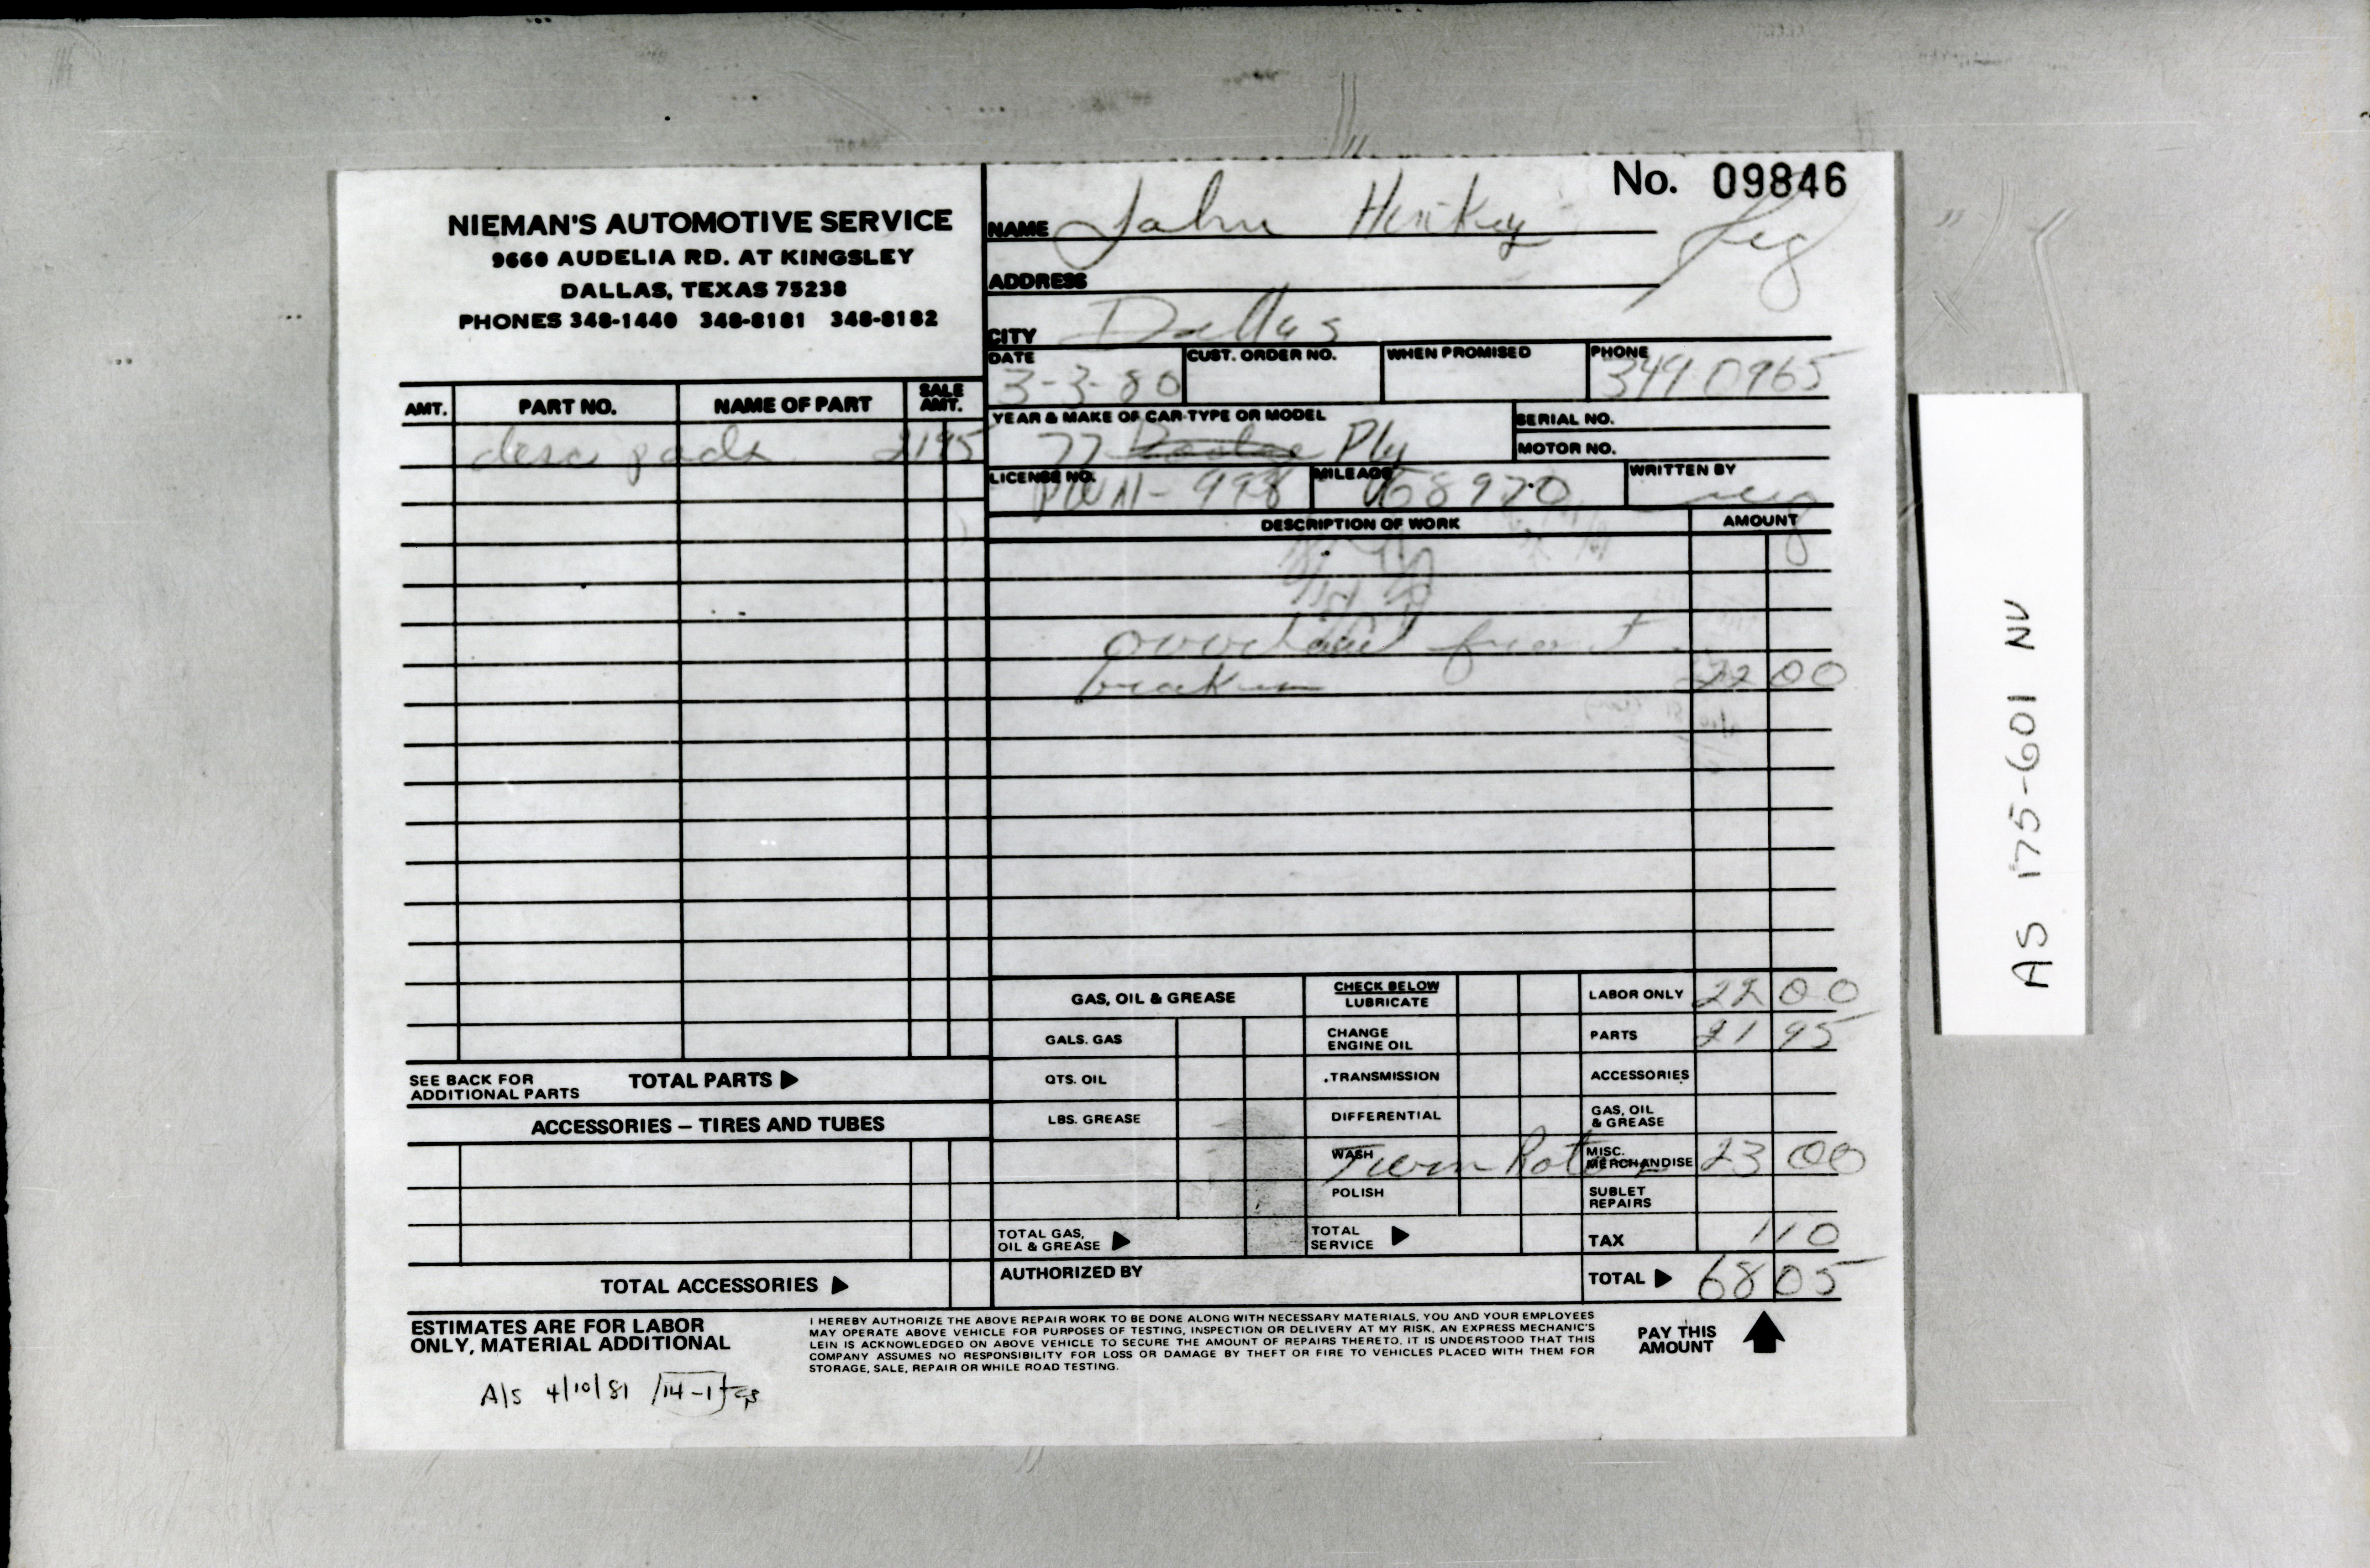 No. 09846
NIEMAN'S AUTOMOTIVE SERVICE
9660 AUDELIA RD. AT KINGSLEY
DALLAS, TEXAS 75238
PHONES 348-1440 348-8181 348-8182
NAME John
ADDRESS
CITY Dallas
DATE CUST. ORDER NO. WHEN PROMISED PHONE
3-3-80 349 0965
YEAR & MAKE OF CAR-TYPE OR MODEL SERIAL NO.
77 Ply MOTOR NO.
LICENSE NO. MILEAGE WRITTEN BY
998 68970
AMT. PART NO. NAME OF PART SALE AMT.
desc pads 2195
DESCRIPTION OF WORK AMOUNT
front
brakes 22 00
GAS, OIL & GREASE
GALS. GAS
QTS. OIL
LBS. GREASE
TOTAL GAS,
OIL & GREASE
CHECK BELOW
LUBRICATE
CHANGE
ENGINE OIL
TRANSMISSION
DIFFERENTIAL
WASH
POLISH
TOTAL
SERVICE
LABOR ONLY 22 00
PARTS 21 95
ACCESSORIES
GAS, OIL
& GREASE
Turn Rotors
MISC.
MERCHANDISE 23 00
SUBLET
REPAIRS
TAX 1 10
TOTAL 68 05
AUTHORIZED BY
SEE BACK FOR
ADDITIONAL PARTS
TOTAL PARTS
ACCESSORIES – TIRES AND TUBES
TOTAL ACCESSORIES
ESTIMATES ARE FOR LABOR
ONLY, MATERIAL ADDITIONAL
I HEREBY AUTHORIZE THE ABOVE REPAIR WORK TO BE DONE ALONG WITH NECESSARY MATERIALS, YOU AND YOUR EMPLOYEES
MAY OPERATE ABOVE VEHICLE FOR PURPOSES OF TESTING, INSPECTION OR DELIVERY AT MY RISK, AN EXPRESS MECHANIC'S
LEIN IS ACKNOWLEDGED ON ABOVE VEHICLE TO SECURE THE AMOUNT OF REPAIRS THERETO. IT IS UNDERSTOOD THAT THIS
COMPANY ASSUMES NO RESPONSIBILITY FOR LOSS OR DAMAGE BY THEFT OR FIRE TO VEHICLES PLACED WITH THEM FOR
STORAGE, SALE, REPAIR OR WHILE ROAD TESTING.
PAY THIS
AMOUNT
A/S 4/10/81
AS 175-601 NV